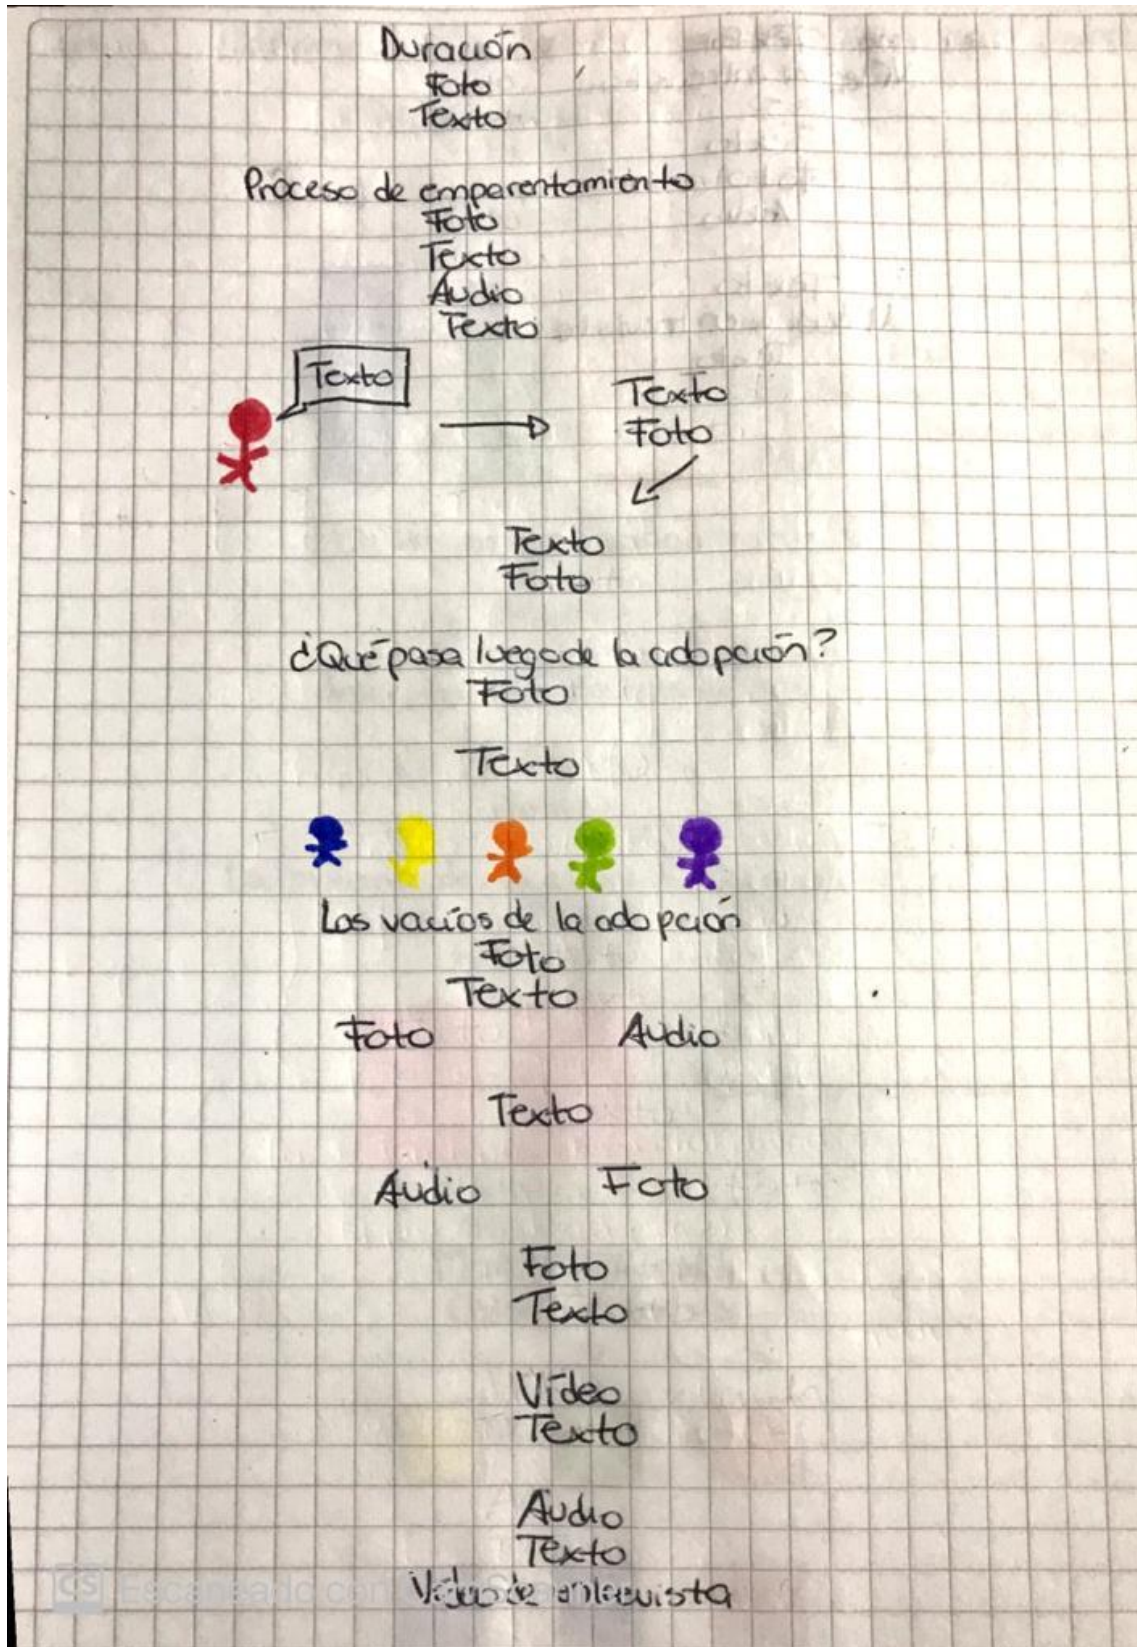 Duración
Foto
Texto
Proceso de emparentamiento
Foto
Texto
Audio
Texto
Texto
Texto
Foto
Texto
Foto
¿Qué pasa luego de la adopción?
Foto
Texto
Los vacíos de la adopción
Foto
Texto
Foto Audio
Texto
Audio Foto
Foto
Texto
Vídeo
Texto
Audio
Texto
Vídeo de entrevista
CS Escaneado con